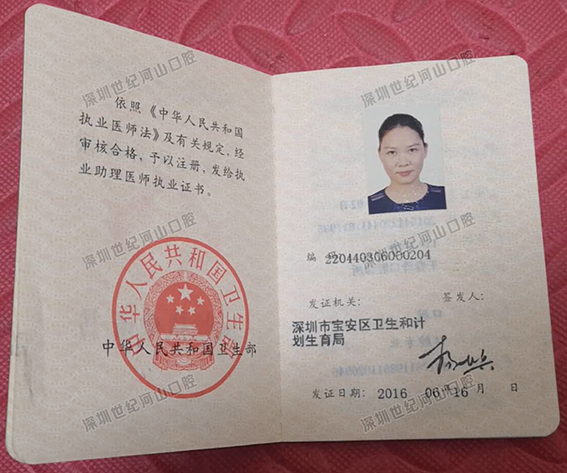 依照《中华人民共和国
执业医师法》及有关规定，经
审核合格，予以注册，发给执
业助理医师执业证书。
中华人民共和国卫生部
中华人民共和国卫生
编 码
220440306000204
发证机关： 签发人：
深圳市宝安区卫生和计
划生育局
发证日期：2016 06 16 月 日
深圳世纪河山口腔
深圳世纪河山口腔
深圳世纪河山口腔
深圳世纪河山口腔
深圳世纪河山口腔
深圳世纪河山口腔